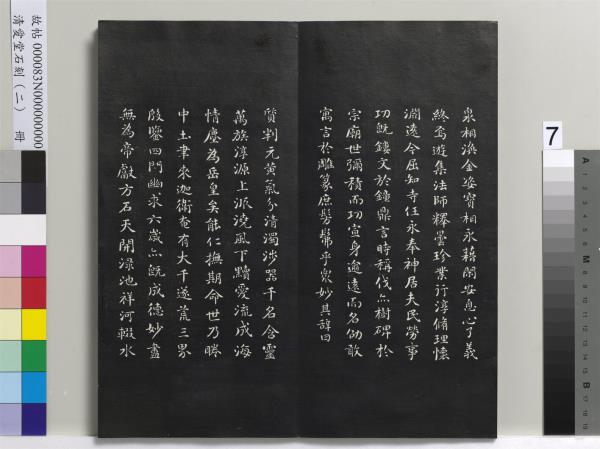 泉相渙金姿寶相永藉閑安息心了義
終焉遊集法師釋曇珍業行淳脩理懷
淵遠今屈知寺任永奉神居夫民勞事
功既鏤文於鐘鼎言時稱伐亦樹碑於
宗廟世彌積而功宣身逾遠而名劭敢
寓言於雕篆庶髣髴乎眾妙其辭曰
質判元黃氣分清濁涉器千名含靈
萬族淳源上派澆風下黷愛流成海
情塵為岳皇矣能仁撫期命世乃睠
中土聿來迦衛奄有大千遂荒三界
殷鑒四門幽求六歲亦既成德妙盡
無為帝獻方石天開淥池祥河輟水
故帖 000083N000000000
清愛堂石刻(二) 冊
7